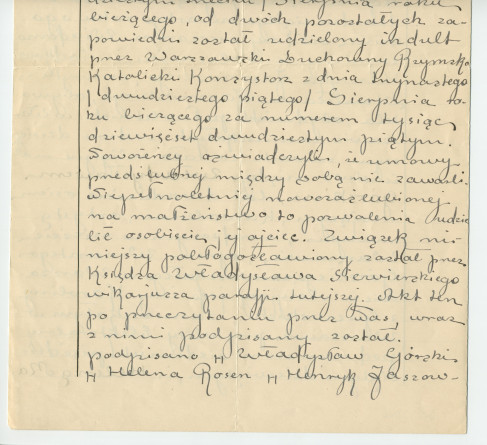 dziestym siódmym / Sierpnia roku
bieżącego, od dwóch pozostałych za-
powiedzi został udzielony indult
przez Warszawski Duchowny Rzymsko
Katolicki Konsystorz z dnia trzynastego
/ dwudziestego piątego / Sierpnia ro-
ku bieżącego za numerem tysiąc
dziewięćset dwudziestym piątym.
Nowożeńcy oświadczyli, iż umowy
przedślubnej między sobą nie zawarli.
Niepełnoletniej nowozaślubionej
na małżeństwo to pozwolenia udzie
lił osobiście jej ojciec. Związek ni-
niejszy pobłogosławiony został przez
Księdza Władysława Siewierskiego
wikarjusza parafji tutejszej. Akt ten
po przeczytaniu przez Nas, wraz
z nimi podpisany został.
podpisano // Władysław Górski
// Helena Rosen // Henryk Jaszow-